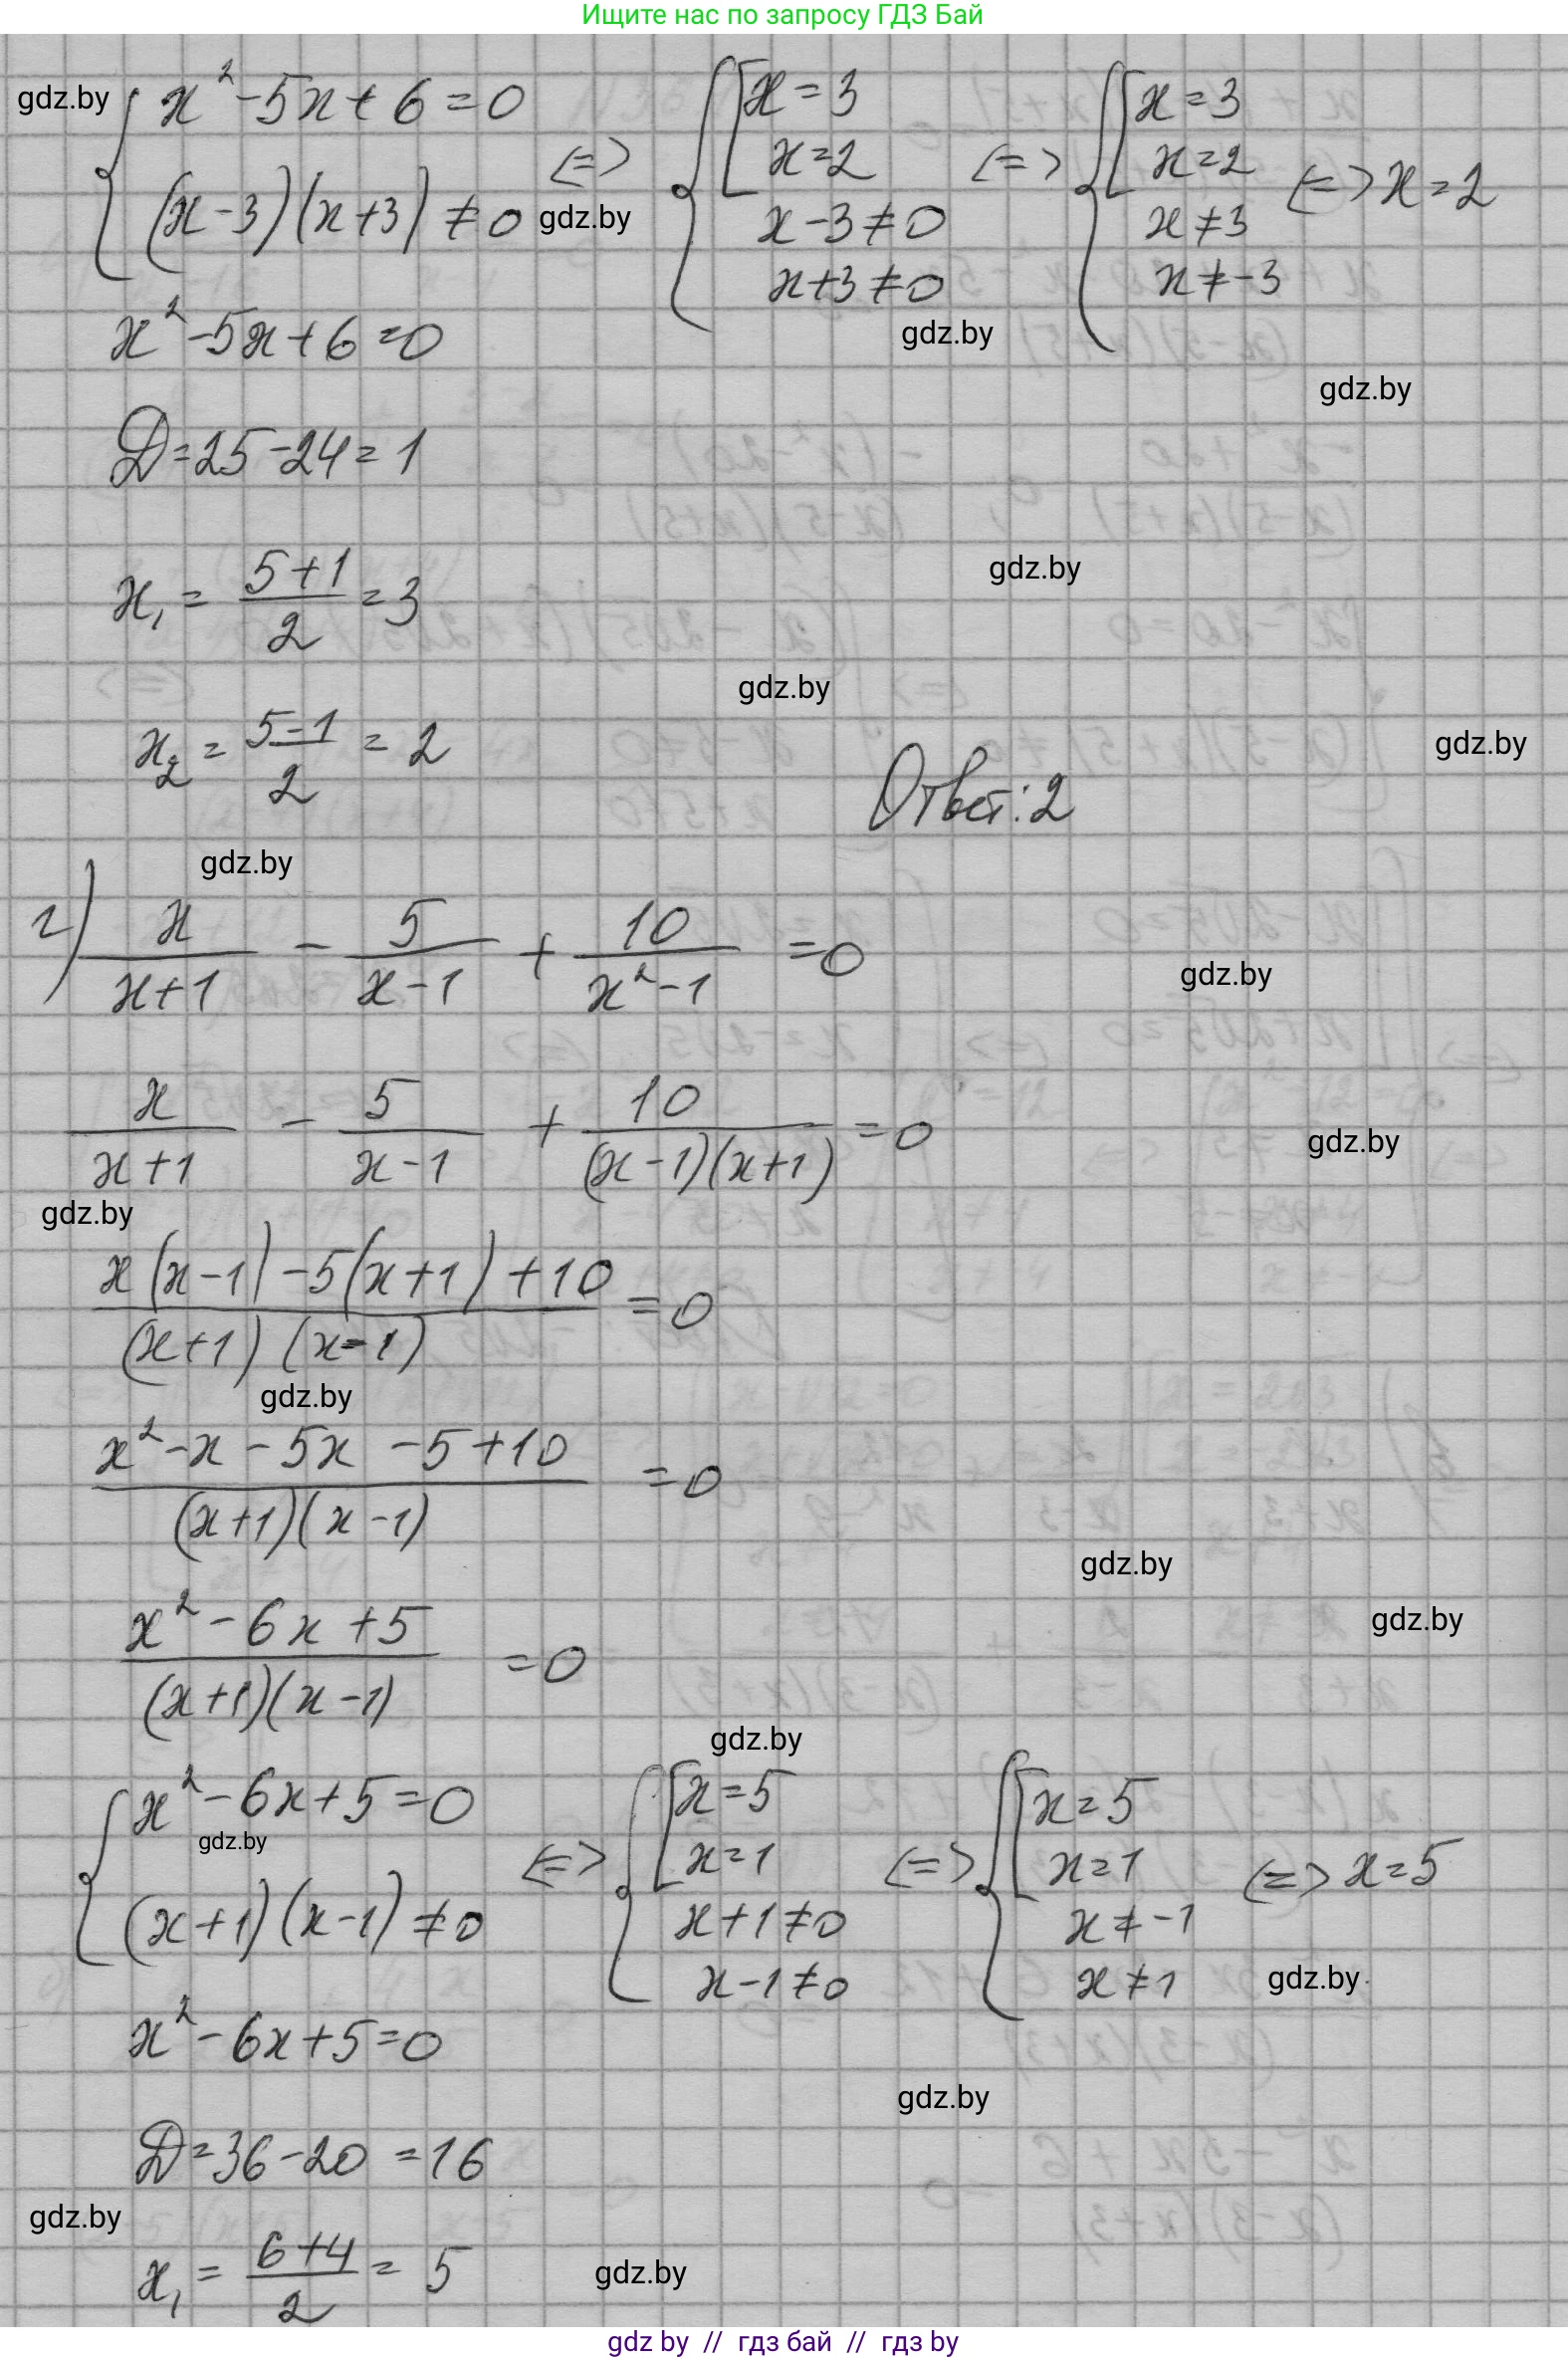 Ищите нас по запросу ГДЗ Бай
gdz.by
{ x² - 5x + 6 = 0
(x - 3)(x + 3) ≠ 0 <=> { [ x = 3
x = 2
x - 3 ≠ 0
x + 3 ≠ 0 <=> { [ x = 3
x = 2
x ≠ 3
x ≠ -3 <=> x = 2
gdz.by
gdz.by
x² - 5x + 6 = 0
gdz.by
Д = 25 - 24 = 1
gdz.by
x₁ = (5 + 1)/2 = 3
gdz.by
gdz.by
x₂ = (5 - 1)/2 = 2
Ответ: 2
gdz.by
г) x/(x + 1) - 5/(x - 1) + 10/(x² - 1) = 0
gdz.by
x/(x + 1) - 5/(x - 1) + 10/((x - 1)(x + 1)) = 0
gdz.by
gdz.by
(x(x - 1) - 5(x + 1) + 10)/((x + 1)(x - 1)) = 0
gdz.by
(x² - x - 5x - 5 + 10)/((x + 1)(x - 1)) = 0
gdz.by
gdz.by
(x² - 6x + 5)/((x + 1)(x - 1)) = 0
gdz.by
{ x² - 6x + 5 = 0
(x + 1)(x - 1) ≠ 0 <=> { [ x = 5
x = 1
x + 1 ≠ 0
x - 1 ≠ 0 <=> { [ x = 5
x = 1
x ≠ -1
x ≠ 1 <=> x = 5
gdz.by
gdz.by
x² - 6x + 5 = 0
gdz.by
Д = 36 - 20 = 16
gdz.by
x₁ = (6 + 4)/2 = 5
gdz.by
gdz by // гдз бай // гдз by